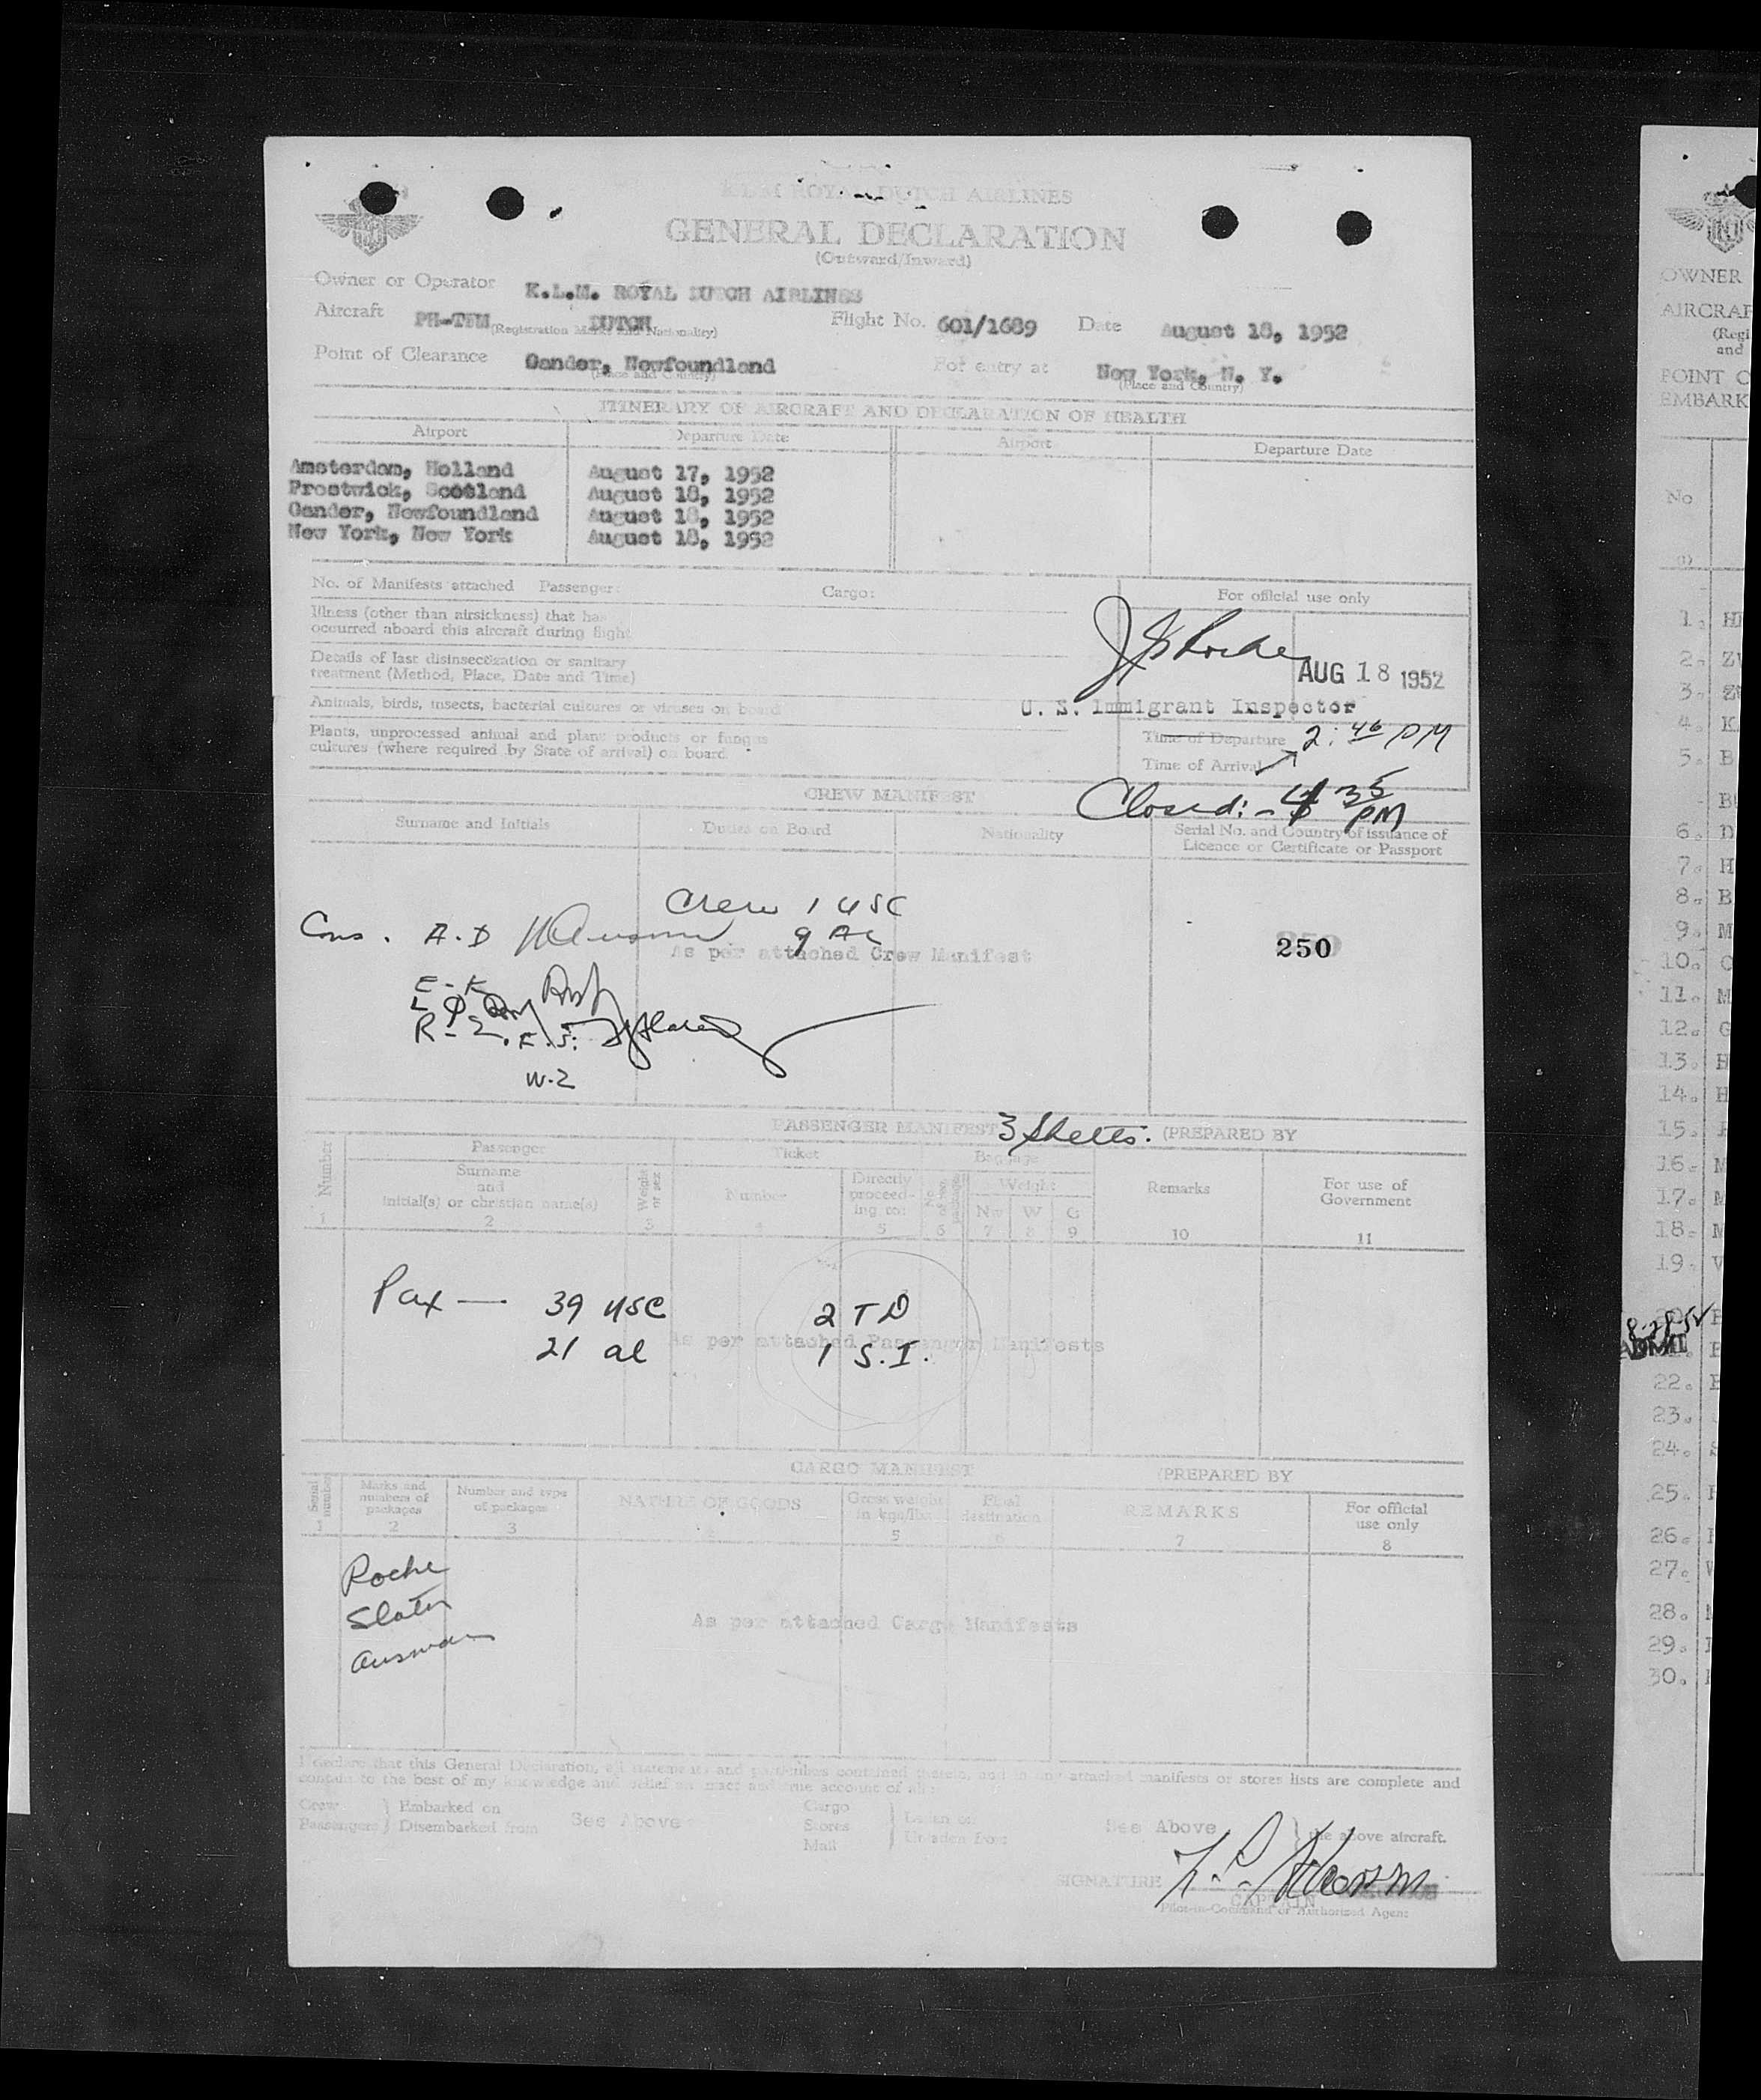 K.L.M ROYAL DUTCH AIRLINES
GENERAL DECLARATION
(Outward/Inward)
Owner or Operator K.L.M. ROYAL DUTCH AIRLINES
Aircraft DUTCH (Registration Marks and Nationality) Flight No. 601/1689 Date August 18, 1952
Point of Clearance Gander, Newfoundland (Place and Country) For entry at New York, N. Y. (Place and Country)
ITINERARY OF AIRCRAFT AND DECLARATION OF HEALTH
Airport Departure Date Airport Departure Date
Amsterdam, Holland August 17, 1952
Prestwick, Scotland August 18, 1952
Gander, Newfoundland August 18, 1952
New York, New York August 18, 1952
No. of Manifests attached Passenger: Cargo: For official use only
Illness (other than airsickness) that has
occurred aboard this aircraft during flight
Details of last disinsectization or sanitary
treatment (Method, Place, Date and Time)
AUG 18 1952
Animals, birds, insects, bacterial cultures or viruses on board
U. S. Immigrant Inspector
Plants, unprocessed animal and plant products or fungus
cultures (where required by State of arrival) on board.
Time of Departure 2:46 PM
Time of Arrival
CREW MANIFEST Closed:- 4 35 PM
Surname and Initials Duties on Board Nationality Serial No. and Country of issuance of
Licence or Certificate or Passport
Crew 1 USC
Cons. A.D 9 AL
As per attached Crew Manifest 250
E-K
R-2. E.S.
W-2
PASSENGER MANIFEST 3 Sheets. (PREPARED BY
Number Passenger Ticket Baggage
Surname
and
initial(s) or christian name(s) Weight or sex Number Directly proceed-ing to: Weight Remarks For use of Government
Nw W G
1 2 3 4 5 6 7 8 9 10 11
Pax — 39 USC 2 TD
21 al 1 S.I.
As per attached Passenger Manifests
CARGO MANIFEST (PREPARED BY
Serial number Marks and numbers of packages Number and type of packages NATURE OF GOODS Gross weight in kgs/lbs Final destination REMARKS For official use only
1 2 3 4 5 6 7 8
Roche
Slater
As per attached Cargo Manifests
I declare that this General Declaration, all statements and particulars contained therein, and in any attached manifests or stores lists are complete and
contain to the best of my knowledge and belief an exact and true account of all:
Crew } Embarked on Cargo } Laden on
Passengers } Disembarked from See Above Stores } Unladen from See Above } the above aircraft.
Mail
SIGNATURE
CAPTAIN
Pilot-in-Command or Authorised Agent
OWNER
AIRCRAF
(Regi
and
POINT O
EMBARK
No
(1)
1.
2.
3.
4. K
5. B
6. D
7. H
8. B
9. M
10.
11. M
12. G
13. H
14. H
15.
16. M
17. M
18. M
19. V
ADMI
22.
23.
24.
25.
26.
27.
28.
29.
30.